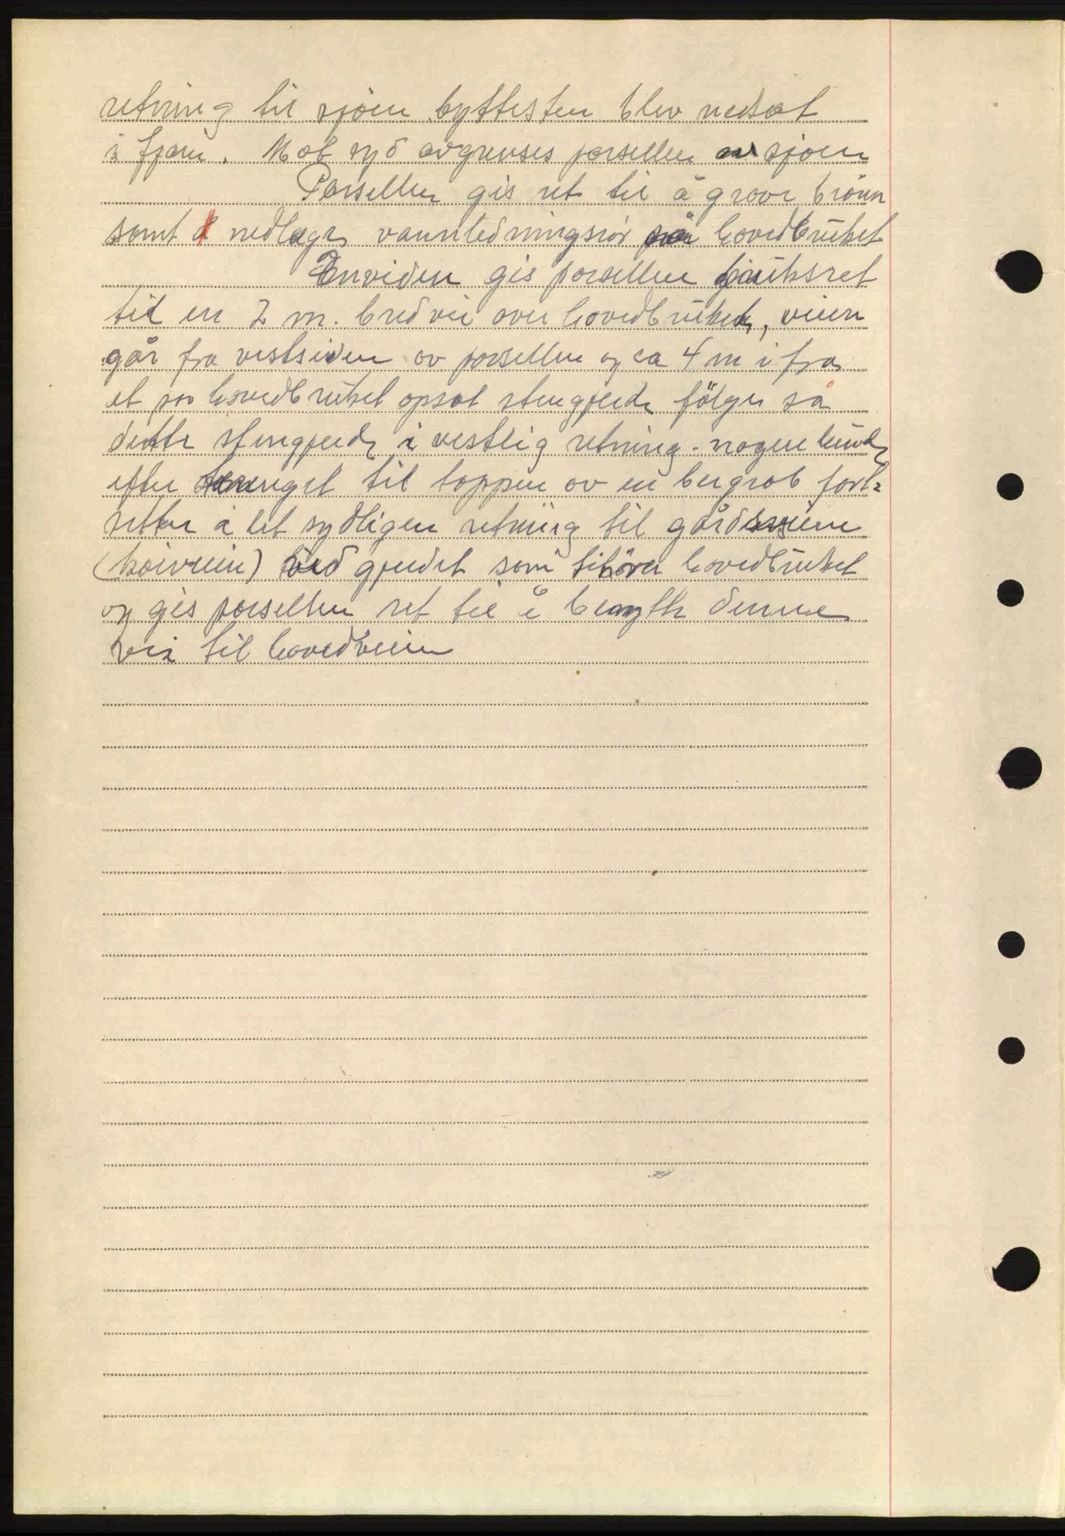 retning til sjöen byttesten blev nedsat
i fjæra. Mot syd avgrenses parsellen av sjöen
Parsellen gis ret til å grave brönn
samt å nedlægge vannledningsrör på hovedbruket
Enviden gis parsellen bruksret
til en 2 m. bred vei over hovedbruket, veien
går fra vestsiden av parsellen og ca 4 m ifra
et på hovedbruket opsat stengjerde fölger så
dette stengjerde i vestlig retning. nogenlunde
efter terrenget til toppen av en bergrab fort=
setter i let sydligere retning til gårdsveien
(höivein) ved gjerdet som tilhörer hovedbruket
og gis parsellen ret til å benytte denne
vei til hovedveien